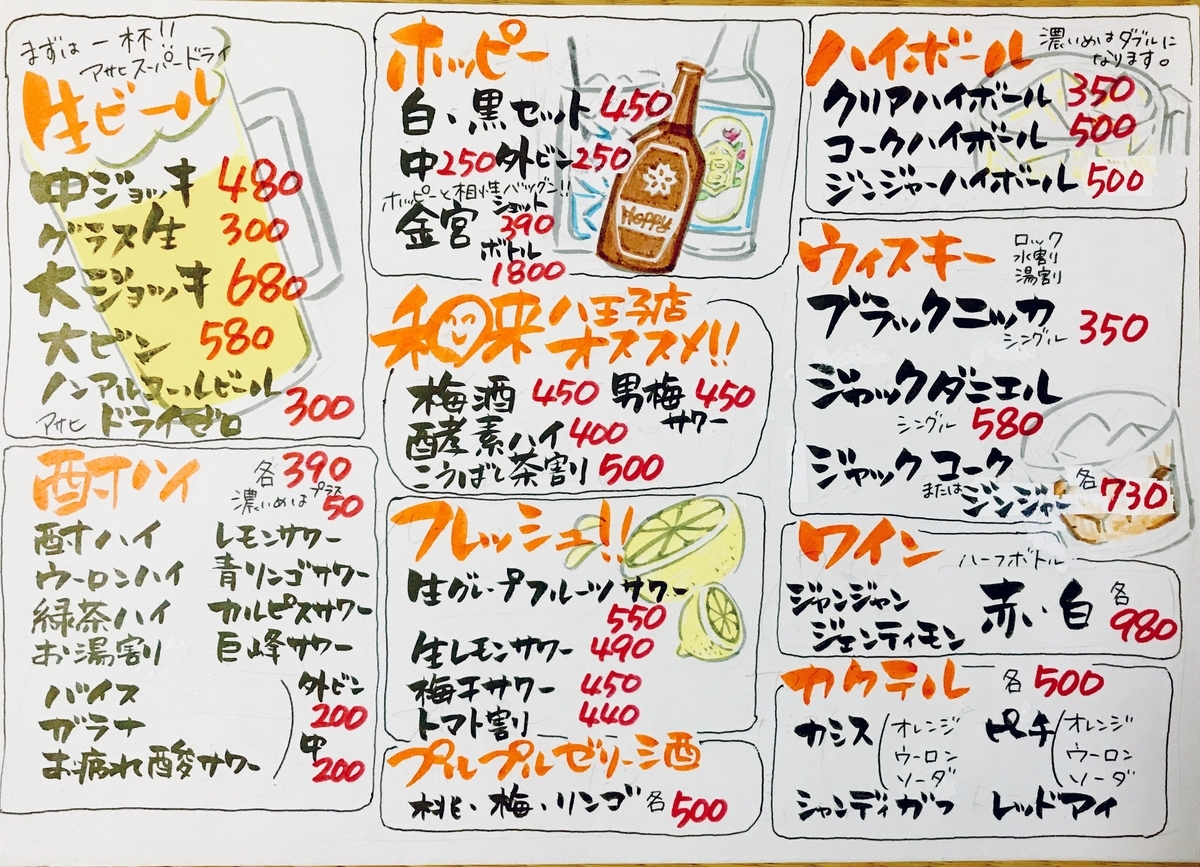 まずは一杯!!
アサヒスーパードライ
生ビール
中ジョッキ 480
グラス生 300
大ジョッキ 680
大ビン 580
ノンアルコールビール
アサヒ ドライゼロ 300
酎ハイ 各390
濃いめはプラス50
酎ハイ レモンサワー
ウーロンハイ 青リンゴサワー
緑茶ハイ カルピスサワー
お湯割り 巨峰サワー
バイス 外ビン
ガラナ 200
お疲れ酸サワー 中200
ホッピー
白・黒セット 450
中250 外ビン250
ホッピーと相性バツグン!!
金宮 ショット 390
ボトル
1800
Hoppy
和来 八王子店
オススメ!!
梅酒 450 男梅サワー 450
酵素ハイ 400
こうばし茶割り 500
フレッシュ!!
生グレープフルーツサワー
550
生レモンサワー 490
梅干サワー 450
トマト割り 440
プルプルゼリー酒
桃・梅・リンゴ 各500
ハイボール
濃いめはダブルに
なります。
クリアハイボール 350
コークハイボール 500
ジンジャーハイボール 500
ウィスキー
ロック
水割り
湯割り
ブラックニッカ
シングル 350
ジャックダニエル
シングル 580
ジャックコーク
または ジンジャー 各730
ワイン ハーフボトル
ジャンジャン
ジェンティモン
赤・白 各980
カクテル 各500
カシス(オレンジ
ウーロン
ソーダ
ピーチ(オレンジ
ウーロン
ソーダ
シャンディガフ レッドアイ